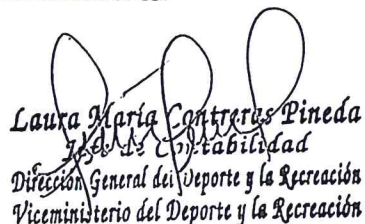 Laura María Contreras Pineda
Jefe de Contabilidad
Dirección General del Deporte y la Recreación
Viceministerio del Deporte y la Recreación